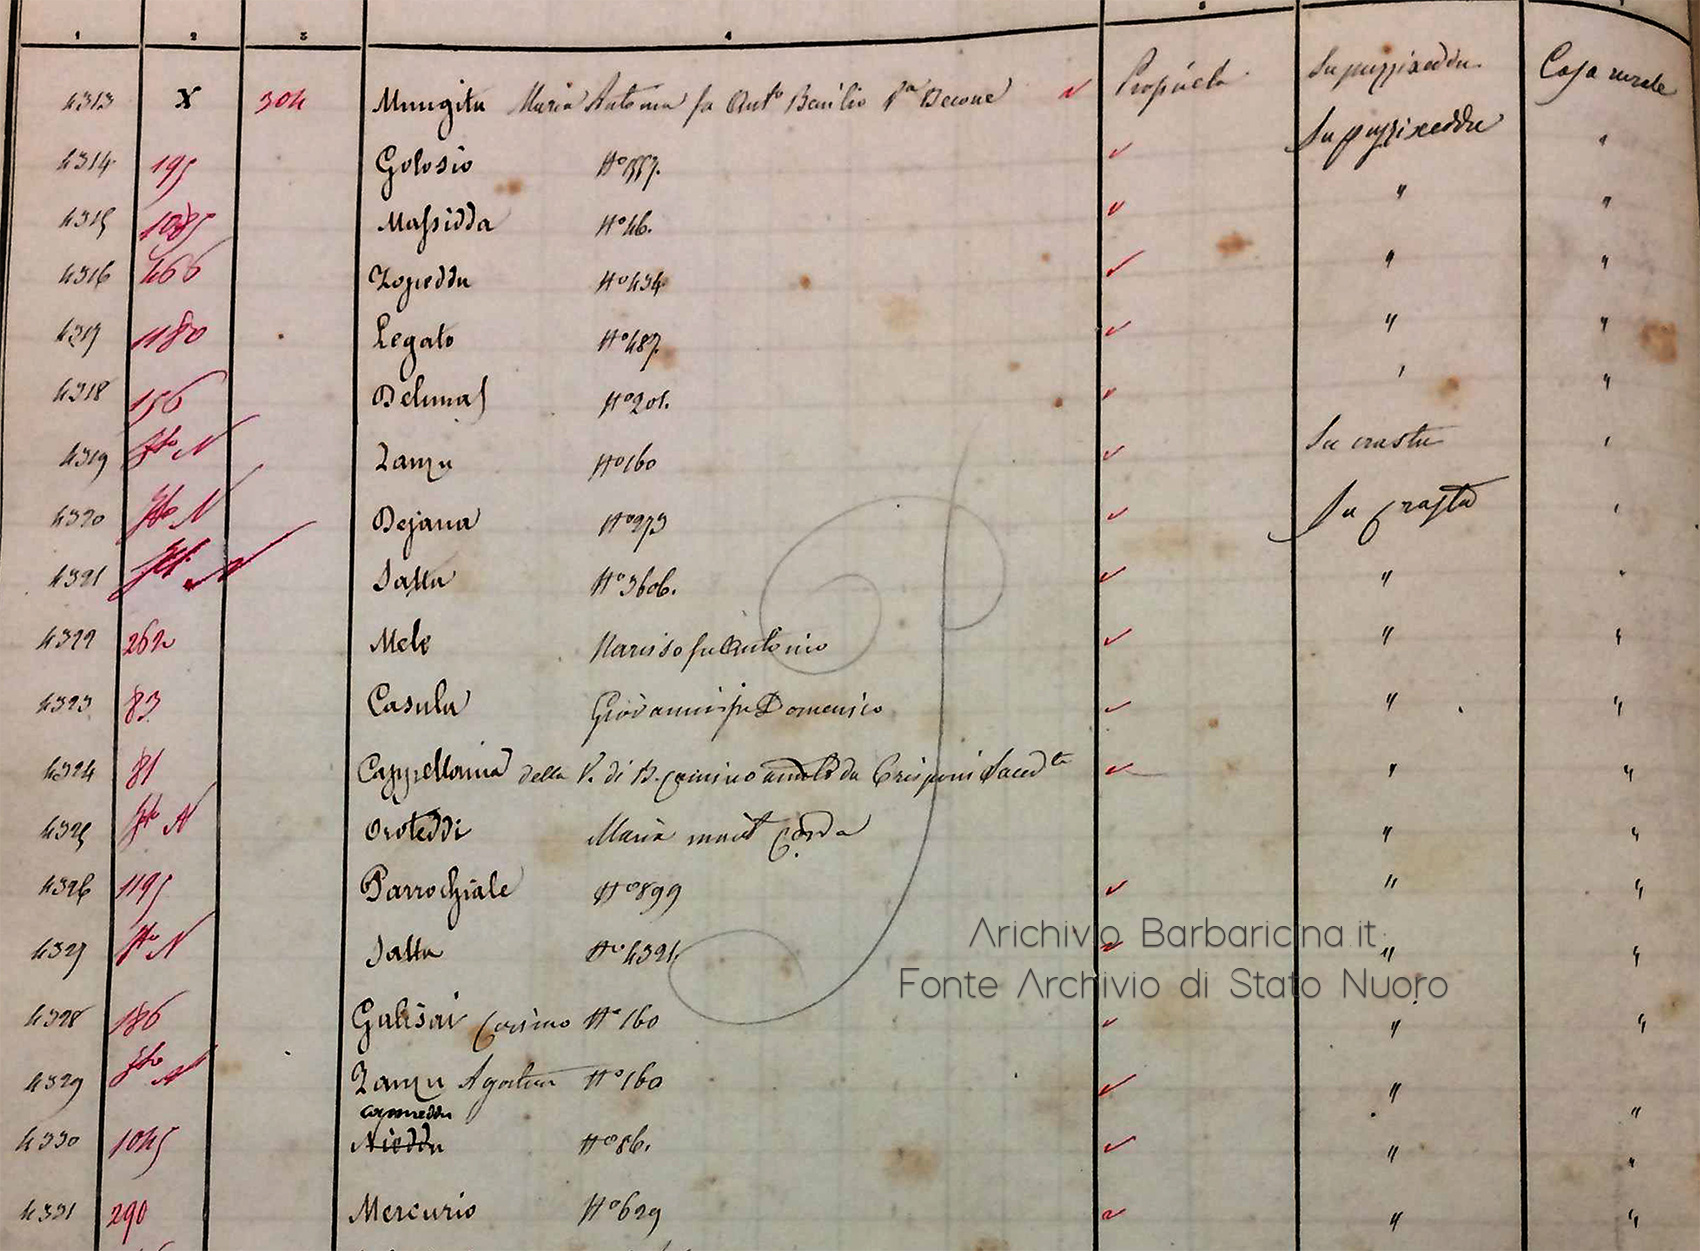 1 2 3 4 5
4313 X 304 Mungitu Maria Antonia fu Ant.o Basilio Proprietà Su puzzixeddu Casa rurale
4314 195 Golosio N° 1557. Su puzzixeddu "
4315 1085 Massidda N° 46. " "
4316 466 Zopeddu N° 434 " "
4317 1180 Legato N° 487. " "
4318 156 Delimas N° 201. " "
4319 N Zanzu N° 160 Su crastu "
4320 N Dejana N° 273 Su Crastu "
4321 N Sattu N° 3606. " "
4322 262 Mele Narciso fu Antonio " "
4323 83 Casula Giovanni fu Domenico " "
4324 81 Cappellania della V. di B. amm.ta da Crisponi Sacerd.te " "
4325 N Oroteddi Maria marit. Corda " "
4326 1195 Parrochiale N° 899 " "
4327 N Sattu N° 4321. " "
4328 186 Galisai Cosimo N° 160 " "
4329 N Zanzu Agostina N° 160 " "
Copareddu
4330 1045 Nieddu N° 86. " "
4331 290 Mercurio N° 629 " "
Arichivio Barbaricina.it
Fonte Archivio di Stato Nuoro